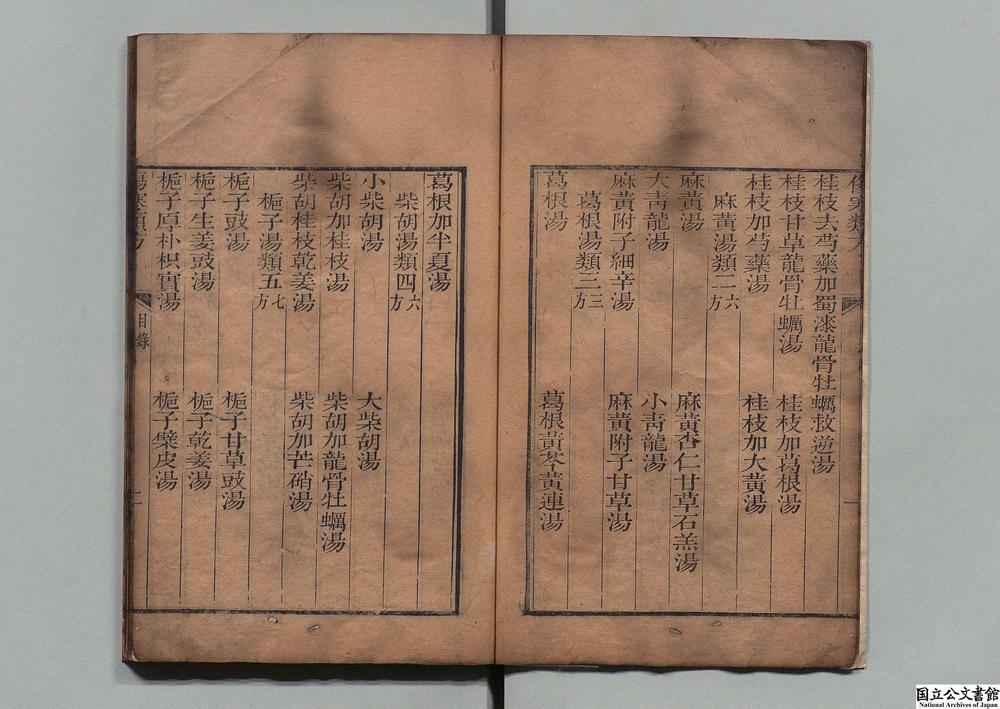 桂枝去芍藥加蜀漆龍骨牡蠣救逆湯
桂枝甘草龍骨牡蠣湯 桂枝加葛根湯
桂枝加芍藥湯 桂枝加大黃湯
麻黃湯類二六方
麻黃湯 麻黃杏仁甘草石羔湯
大靑龍湯 小靑龍湯
麻黃附子細辛湯 麻黃附子甘草湯
葛根湯類三三方
葛根湯 葛根黃芩黃連湯
葛根加半夏湯
柴胡湯類四六方
小柴胡湯 大柴胡湯
柴胡加桂枝湯 柴胡加龍骨牡蠣湯
柴胡桂枝乾姜湯 柴胡加芒硝湯
梔子湯類五七方
梔子豉湯 梔子甘草豉湯
梔子生姜豉湯 梔子乾姜湯
梔子厚朴枳實湯 梔子檗皮湯
傷寒類方 目錄 二
国立公文書館
National Archives of Japan